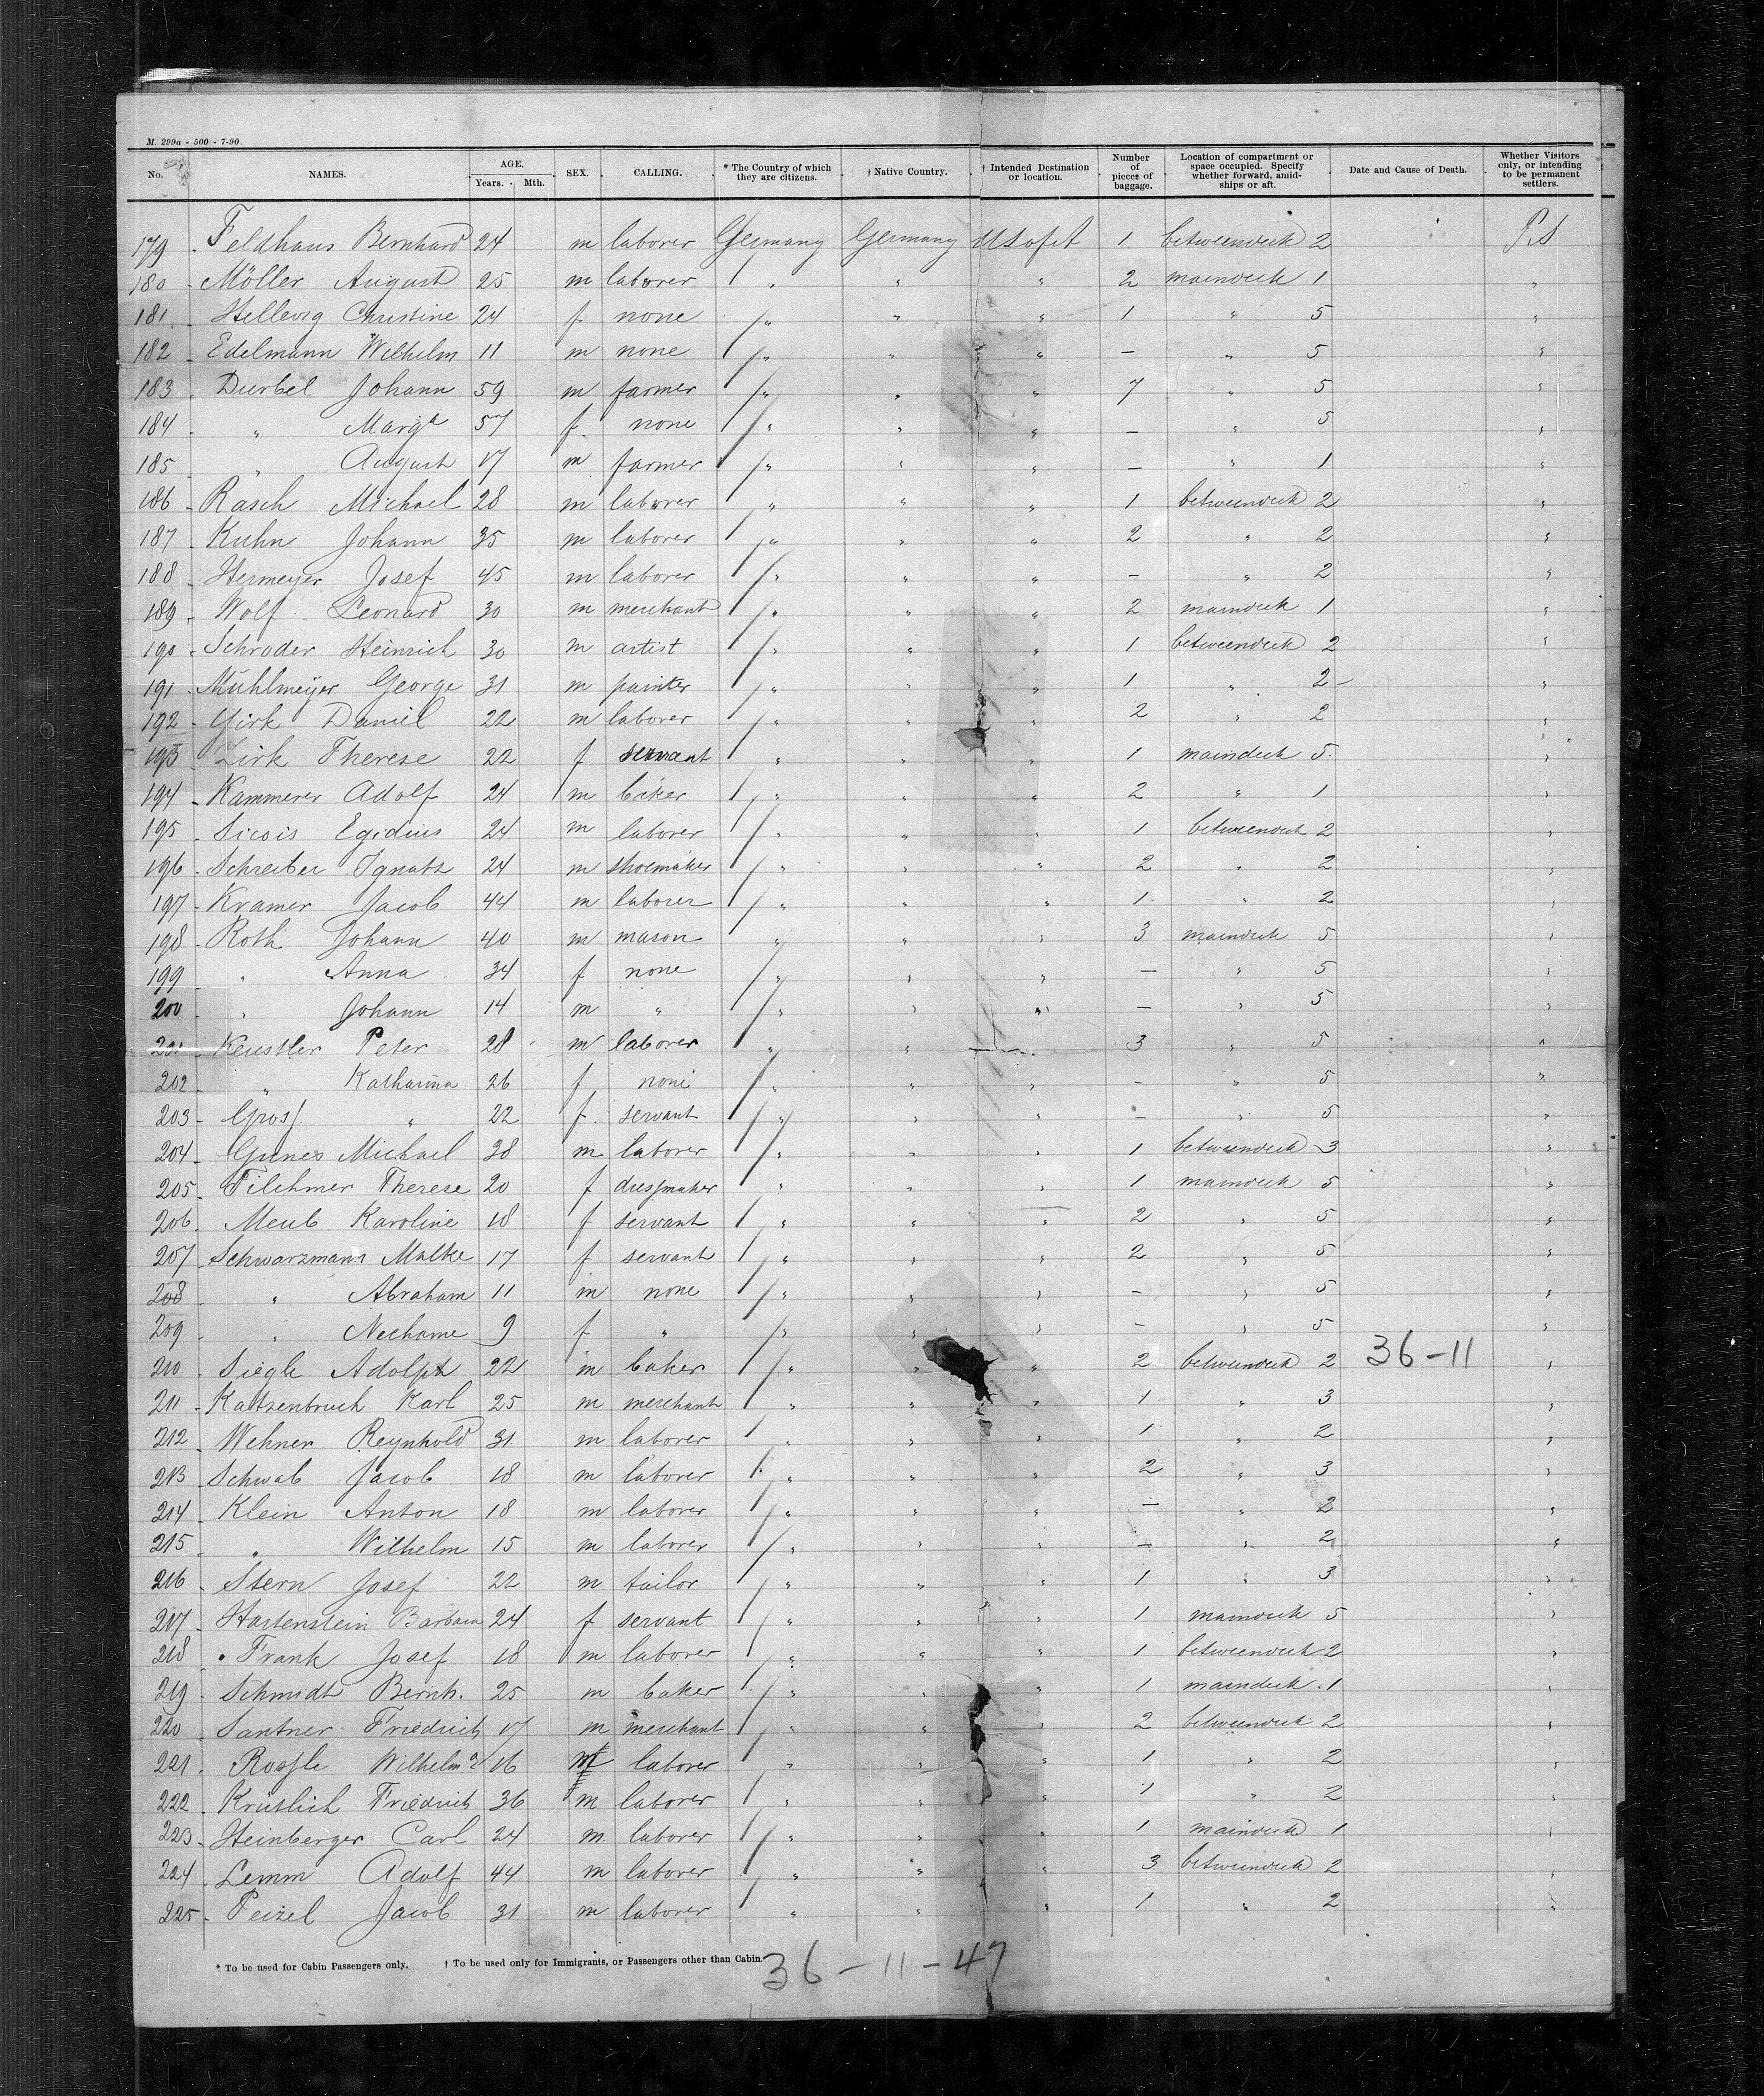 M. 299a - 500 - 7-90.
No. NAMES. AGE. Years. Mth. SEX. CALLING. * The Country of which they are citizens. † Native Country. † Intended Destination or location. Number of pieces of baggage. Location of compartment or space occupied. Specify whether forward, amid-ships or aft. Date and Cause of Death. Whether Visitors only, or intending to be permanent settlers.
179 Feldhaus Bernhard 24 m laborer Germany Germany U S of A 1 betweendeck 2 P.S
180 Möller August 25 m laborer " " " 2 maindeck 1 "
181 Hellevig Christine 24 f none " " " 1 " 5 "
182 Edelmann Wilhelm 11 m none " " " — " 5 "
183 Durbel Johann 59 m farmer " " " 7 " 5 "
184 " Marga 57 f. none " " " — " 5 "
185 " August 17 m farmer " " " — " 1 "
186 Rasch Michael 28 m laborer " " " 1 betweendeck 2 "
187 Kuhn Johann 35 m laborer " " " 2 " 2 "
188 Hermeyer Josef 45 m laborer " " " — " 2 "
189 Wolf Leonard 30 m merchant " " " 2 maindeck 1 "
190 Schroder Heinrich 30 m artist " " " 1 betweendeck 2 "
191 Mühlmeyer George 31 m painter " " " 1 " 2 — "
192 Girk Daniel 22 m laborer " " " 2 " 2 "
193 Zirk Therese 22 f servant " " " 1 maindeck 5. "
194 Kammerer Adolf 24 m baker " " " 2 " 1 "
195 Sicois Egidius 24 m laborer " " " 1 betweendeck 2 "
196 Schreiber Ignatz 24 m shoemaker " " " 2 " 2 "
197 Kramer Jacob 44 m laborer " " " 1 " 2 "
198 Roth Johann 40 m mason " " " 3 maindeck 5 "
199 " Anna 34 f none " " " — " 5 "
200 " Johann 14 m " " " " — " 5 "
201 Keustler Peter 28 m laborer " " " 3 " 5 "
202 " Katharina 26 f none " " " — " 5 "
203 Gross " 22 f. servant " " " — " 5 "
204 Grunes Michael 38 m laborer " " " 1 betweendeck 3 "
205 Filchmer Therese 20 f dressmaker " " " 1 maindeck 5 "
206 Meub Karoline 18 f servant " " " 2 " 5 "
207 Schwarzmann Malke 17 f servant " " " 2 " 5 "
208 " Abraham 11 m none " " " — " 5 "
209 " Nechame 9 f " " " " — " 5 "
210 Siegle Adolph 22 m baker " " " 2 betweendeck 2 36-11 "
211 Katzenbruch Karl 25 m merchant " " " 1 " 3 "
212 Wehner Reynhold 31 m laborer " " " 1 " 2 "
213 Schwab Jacob 18 m laborer " " " 2 " 3 "
214 Klein Anton 18 m laborer " " " — " 2 "
215 " Wilhelm 15 m laborer " " " — " 2 "
216 Stern Josef 22 m tailor " " " 1 " 3 "
217 Hartenstein Barbara 24 f servant " " " 1 maindeck 5 "
218 Frank Josef 18 m laborer " " " 1 betweendeck 2 "
219 Schmidt Bernh. 25 m baker " " " 1 maindeck 1 "
220 Santner Friedrich 17 m merchant " " " 2 betweendeck 2 "
221 Rossle Wilhelma 16 f laborer " " " 1 " 2 "
222 Krutlich Friedrich 36 m laborer " " " 1 " 2 "
223 Heinberger Carl 24 m laborer " " " 1 maindeck 1 "
224 Lemm Adolf 44 m laborer " " " 3 betweendeck 2 "
225 Peizel Jacob 31 m laborer " " " 1 " 2 "
* To be used for Cabin Passengers only. † To be used only for Immigrants, or Passengers other than Cabin.
36-11-47